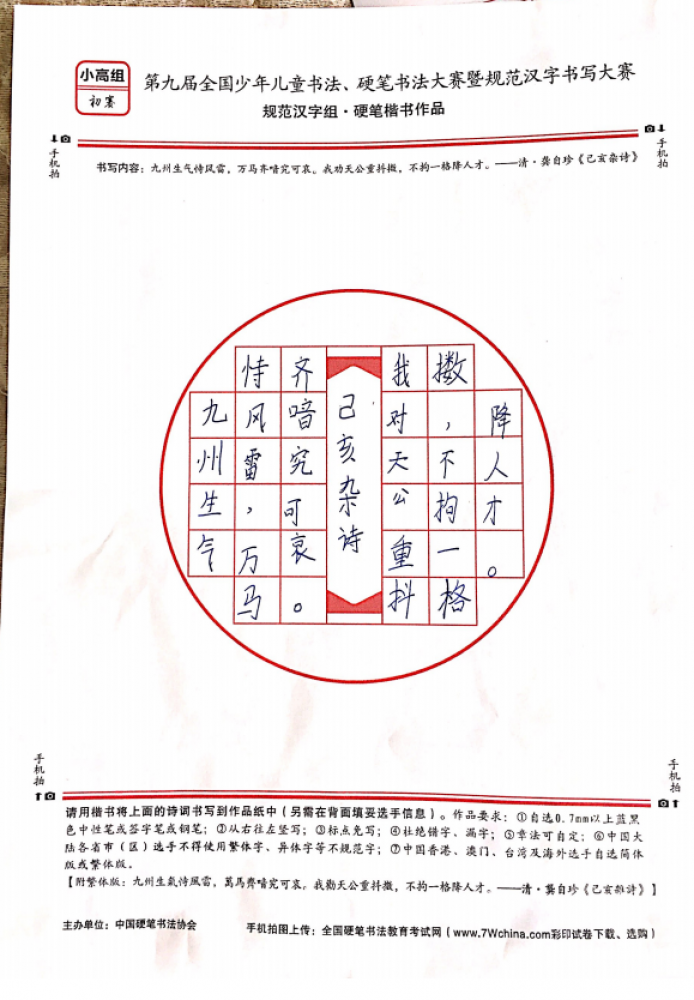 小高组
初赛
第九届全国少年儿童书法、硬笔书法大赛暨规范汉字书写大赛
规范汉字组·硬笔楷书作品
手机拍
手机拍
书写内容：九州生气恃风雷，万马齐喑究可哀。我劝天公重抖擞，不拘一格降人才。——清·龚自珍《己亥杂诗》
九州生气
恃风雷，万马
齐喑究可哀。
己亥杂诗
我对天公重抖
擞，不拘一格
降人才。
手机拍
手机拍
请用楷书将上面的诗词书写到作品纸中（另需在背面填妥选手信息）。作品要求：①自选0.7mm以上蓝黑
色中性笔或签字笔或钢笔；②从右往左竖写；③标点免写；④杜绝错字、漏字；⑤章法可自定；⑥中国大
陆各省市（区）选手不得使用繁体字、异体字等不规范字；⑦中国香港、澳门、台湾及海外选手自选简体
版或繁体版。
【附繁体版：九州生氣恃風雷，萬馬齊喑究可哀。我勸天公重抖擻，不拘一格降人才。——清·龔自珍《己亥雜詩》】
主办单位：中国硬笔书法协会
手机拍图上传：全国硬笔书法教育考试网（www.7Wchina.com彩印试卷下载、选购）